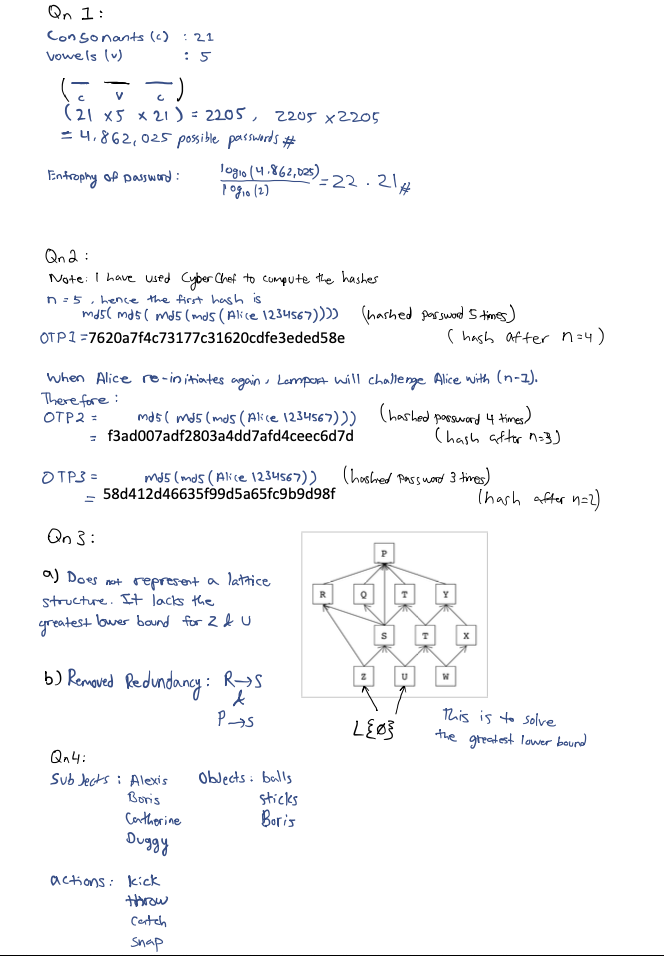 Qn 1:
Consonants (c) : 21
Vowels (v) : 5
( _ _ _ )
c v c
(21 x5 x 21) = 2205, 2205 x2205
= 4,862,025 possible passwords #
Entrophy of password: log10 (4,862,025) / log10 (2) = 22.21 #
Qn2:
Note: I have used CyberChef to compute the hashes
n = 5, hence the first hash is
md5( md5( md5 (md5 (Alice 1234567)))) (hashed password 5 times)
OTP1 =7620a7f4c73177c31620cdfe3eded58e (hash after n=4)
When Alice re-initiates again, Lamport will challenge Alice with (n-1).
Therefore:
OTP2 = md5( md5 (md5 (Alice 1234567))) (hashed password 4 times)
= f3ad007adf2803a4dd7afd4ceec6d7d (hash after n=3)
OTP3 = md5 (md5 (Alice 1234567)) (hashed password 3 times)
= 58d412d46635f99d5a65fc9b9d98f (hash after n=2)
Qn3:
a) Does not represent a lattice
structure. It lacks the
greatest lower bound for Z & U
b) Removed Redundancy: R→S
&
P→S
P
R Q T Y
S T X
Z U W
L{Ø}
This is to solve
the greatest lower bound
Qn4:
Subjects: Alexis Objects: balls
Boris sticks
Catherine Boris
Duggy
actions: kick
throw
catch
snap